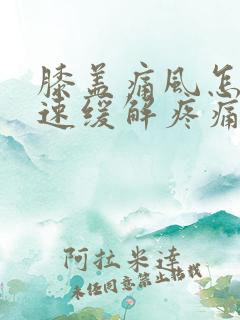 膝盖痛风怎
速缓解疼痛
阿拉米达
未经同意禁止转载